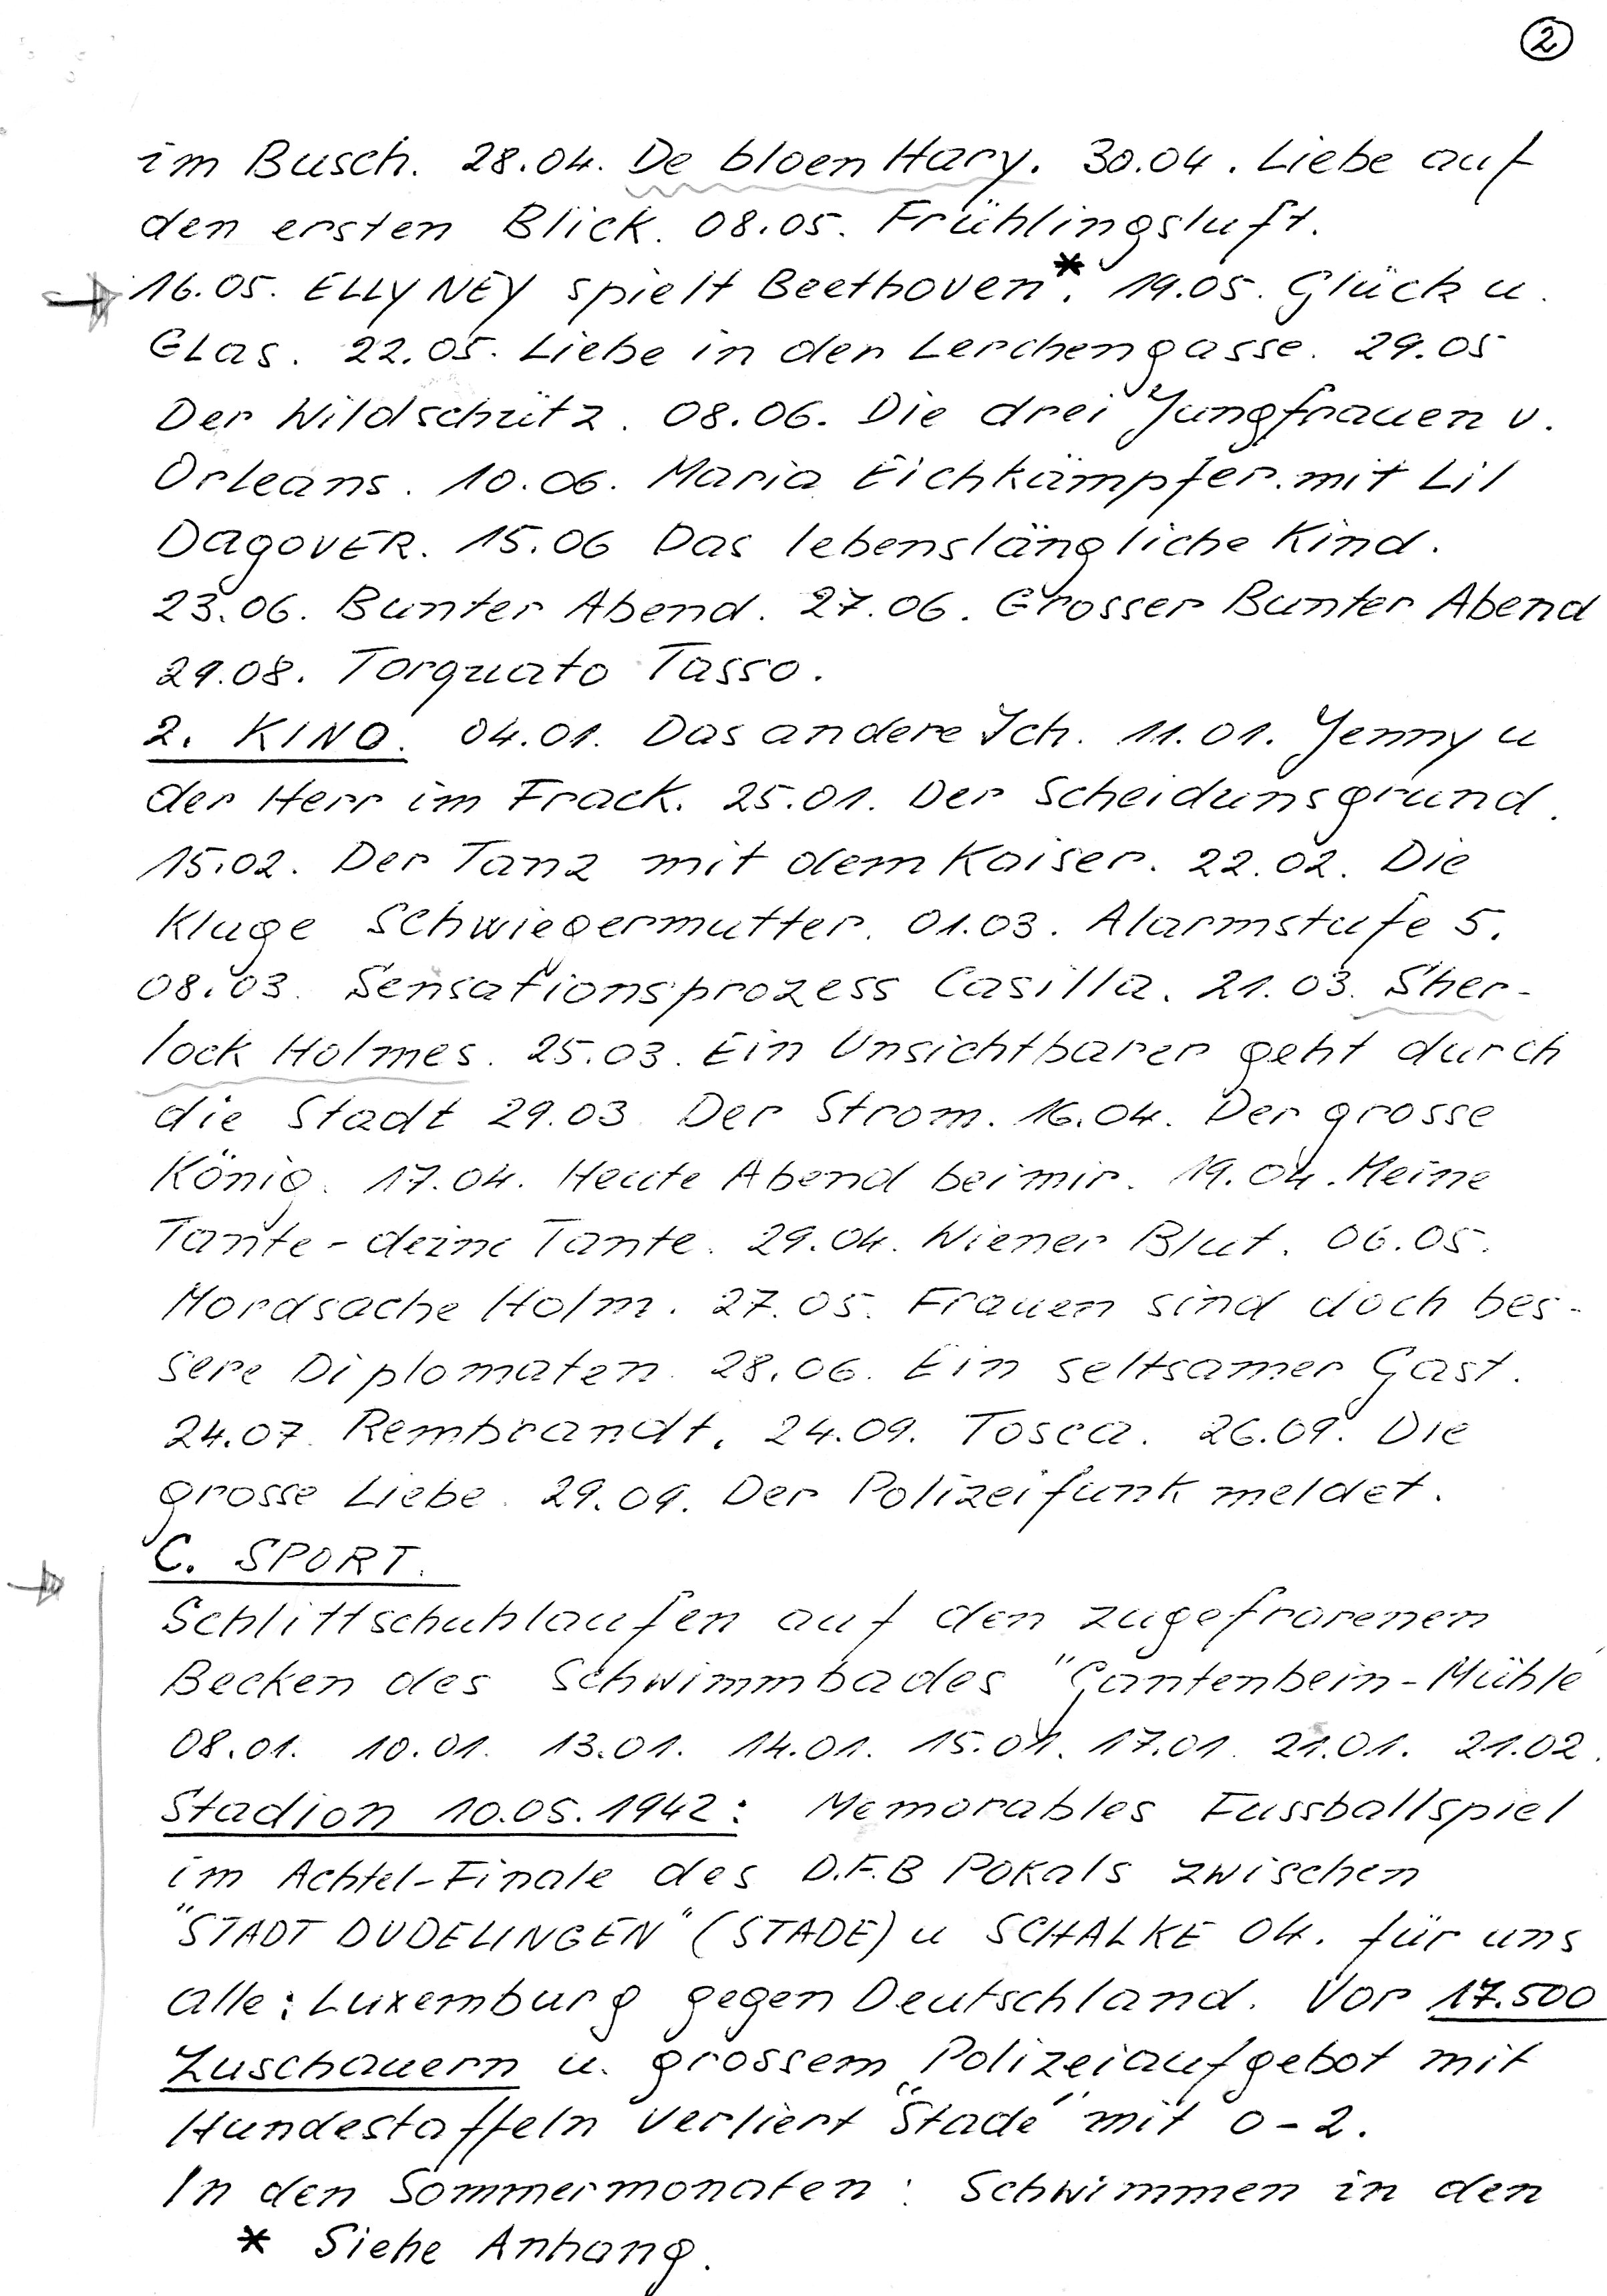 2
im Busch. 28.04. De bloen Hary. 30.04. Liebe auf
den ersten Blick. 08.05. Frühlingsluft.
16.05. ELLY NEY spielt Beethoven*. 19.05. Glück u.
Glas. 22.05. Liebe in der Lerchengasse. 29.05
Der Wildschütz. 08.06. Die drei Jungfrauen v.
Orleans. 10.06. Maria Eichkämpfer. mit Lil
DagoVER. 15.06 Das lebenslängliche Kind.
23.06. Bunter Abend. 27.06. Grosser Bunter Abend
29.08. Torquato Tasso.
2. KINO. 04.01. Das andere Ich. 11.01. Jenny u
der Herr im Frack. 25.01. Der Scheidunsgrund.
15.02. Der Tanz mit dem Kaiser. 22.02. Die
Kluge Schwiegermutter. 01.03. Alarmstufe 5.
08.03. Sensationsprozess Casilla. 21.03. Sher-
lock Holmes. 25.03. Ein Unsichtbarer geht durch
die Stadt 29.03. Der Strom. 16.04. Der grosse
König. 17.04. Heute Abend bei mir. 19.04. Meine
Tante - deine Tante. 29.04. Wiener Blut. 06.05.
Mordsache Holm. 27.05. Frauen sind doch bes-
sere Diplomaten. 28.06. Ein seltsamer Gast.
24.07. Rembrandt. 24.09. Tosca. 26.09. Die
grosse Liebe. 29.09. Der Polizeifunk meldet.
C. SPORT.
Schlittschuhlaufen auf den zugefrorenen
Becken des Schwimmbades "Gantenbein-Mühle
08.01. 10.01. 13.01. 14.01. 15.01. 17.01. 21.01. 21.02.
Stadion 10.05.1942: Memorables Fussballspiel
im Achtel-Finale des D.F.B Pokals zwischen
"STADT DUDELINGEN" (STADE) u SCHALKE 04. für uns
alle: Luxemburg gegen Deutschland. Vor 17.500
Zuschauern u. grossem Polizeiaufgebot mit
Hundestaffeln verliert "Stade" mit 0-2.
In den Sommermonaten: Schwimmen in den
* Siehe Anhang.